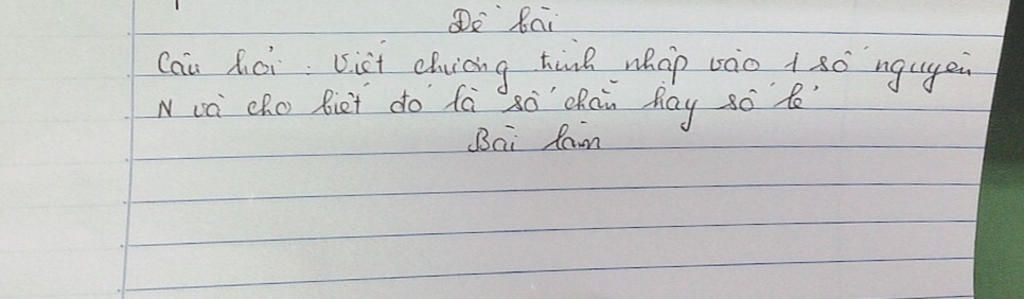 Đề bài
Câu hỏi : Viết chương trình nhập vào 1 số nguyên
N và cho biết đó là số chẵn hay số lẻ
Bài làm